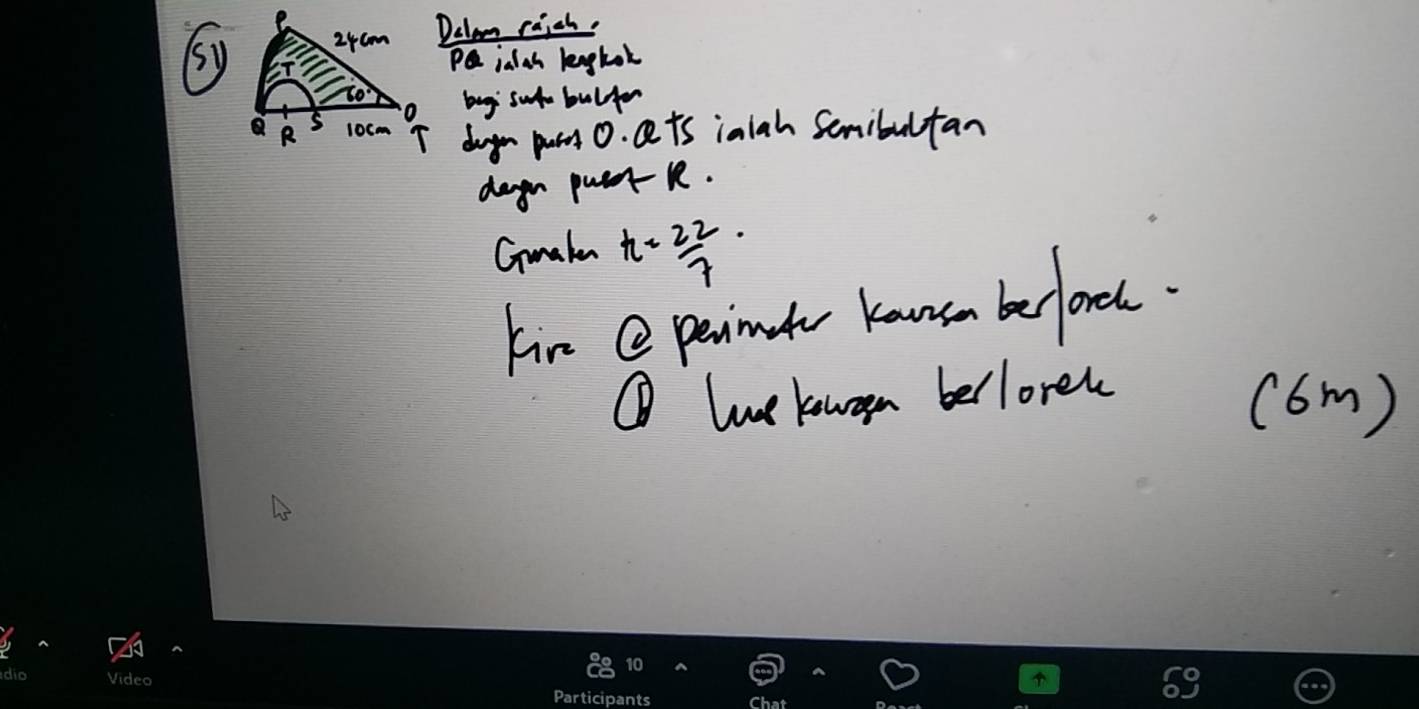 51
P
24cm
T
60°
O
Q R S 10cm
Dalam rajah.
PQ ialah lengkok
bagi suatu bulatan
dengan pusat O. QTS ialah Semibulatan
dengan pusat R.
Gunakan π = 22/7.
Kira @ perimeter kawasan berlorek.
b luas kawasan berlorek (6m)
dio
Video
10
Participants
Chat